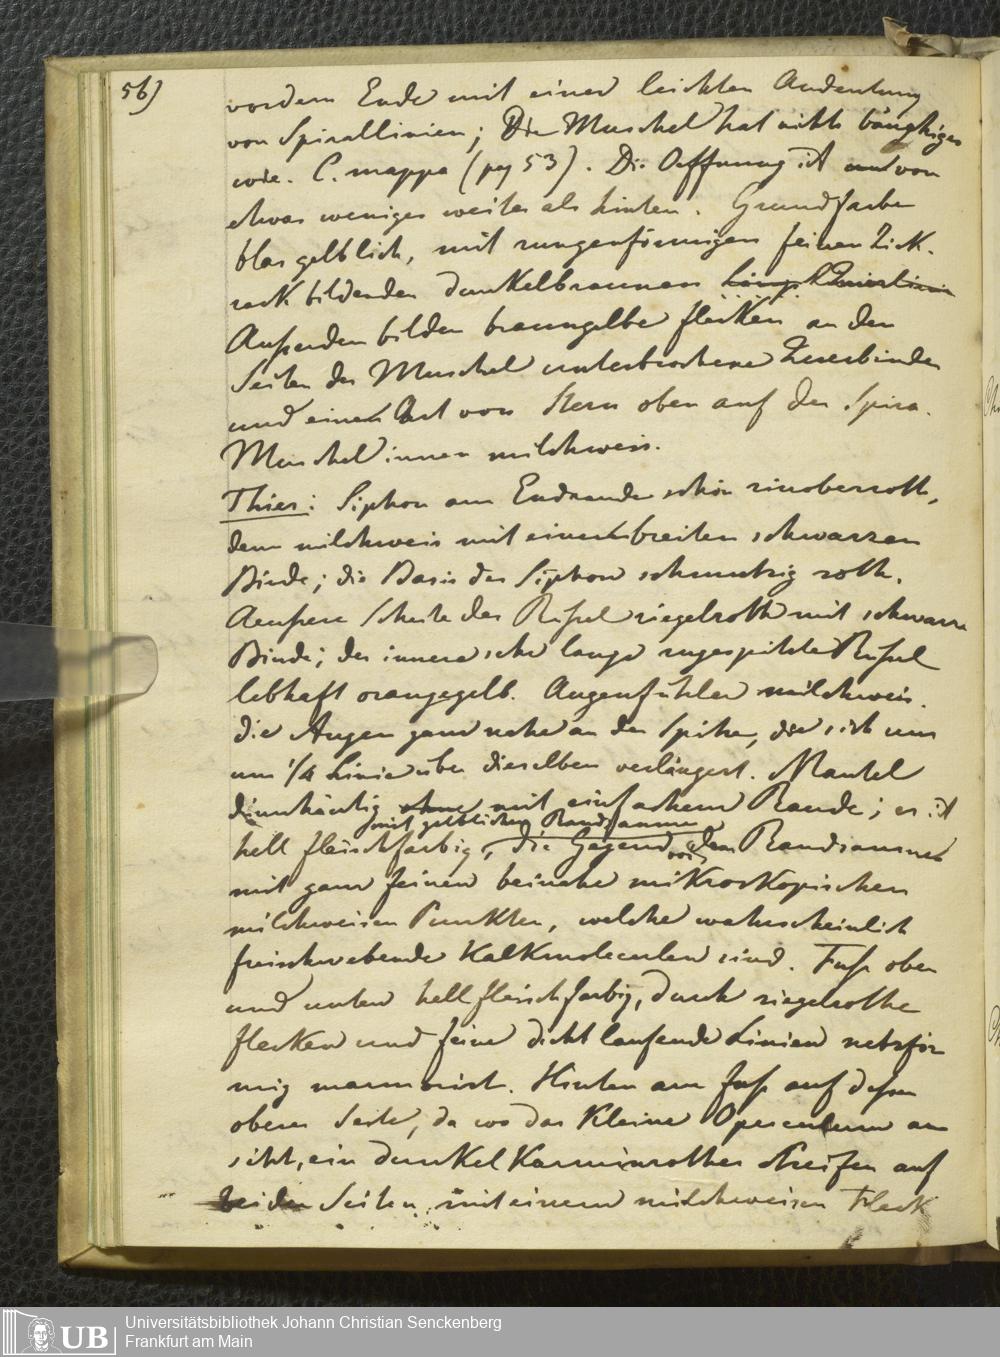 56)
vordern Ende mit einer leichten Andeutung
von Spirallinien; Die Muschel hat nichts bauchiges
wie C. mappa (pg 53). Die Oeffnung ist vorn
etwas weniger weiter als hinten. Grundfarbe
blas gelblich, mit feinen Zick-
zack bildenden dunkelbraunen
Ausserdem bilden braungelbe flecken an den
Seiten der Muschel unterbrochene Querbinden
und eine Art von Stern oben auf der Spira.
Muschel innen milchweis.
Thier: Siphon am Endrande schön zinoberroth,
dann milchweis mit einer breiten schwarzen
Binde; die Basis des Siphon schmutzig roth.
Aeussere Scheide des Rüssel ziegelroth mit schwarzer
Binde; der innere sehr lange zugespitzte Rüssel
lebhaft orangegelb. Augenfühler milchweis.
die Augen ganz nahe an der Spitze, die sich nur
um 1/4 Linie über dieselben verlängert. Mantel
dünnhäutig ohne mit einfachem Rande; er ist
mit gelblichem Randsaume
hell fleischfarbig, die Gegend vor dem Randsaume
mit ganz feinen beinahe mikroskopischen
milchweisen Punkten, welche wahrscheinlich
freischwebende Kalkmolecülen sind. Fuss oben
und unten hell fleischfarbig, durch ziegelrothe
flecken und feine dicht laufende Linien netzför-
mig marmorirt. Hinten am fuss auf dessen
oberer Seite, da wo das kleine Operculum an
sitzt, ein dunkel karminrother Streifen auf
beiden Seiten mit einem milchweisen Fleck
UB
Universitätsbibliothek Johann Christian Senckenberg
Frankfurt am Main